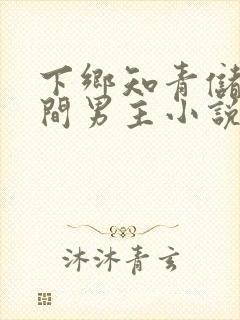 下鄉知青儲
間男主小說
沐沐青玄